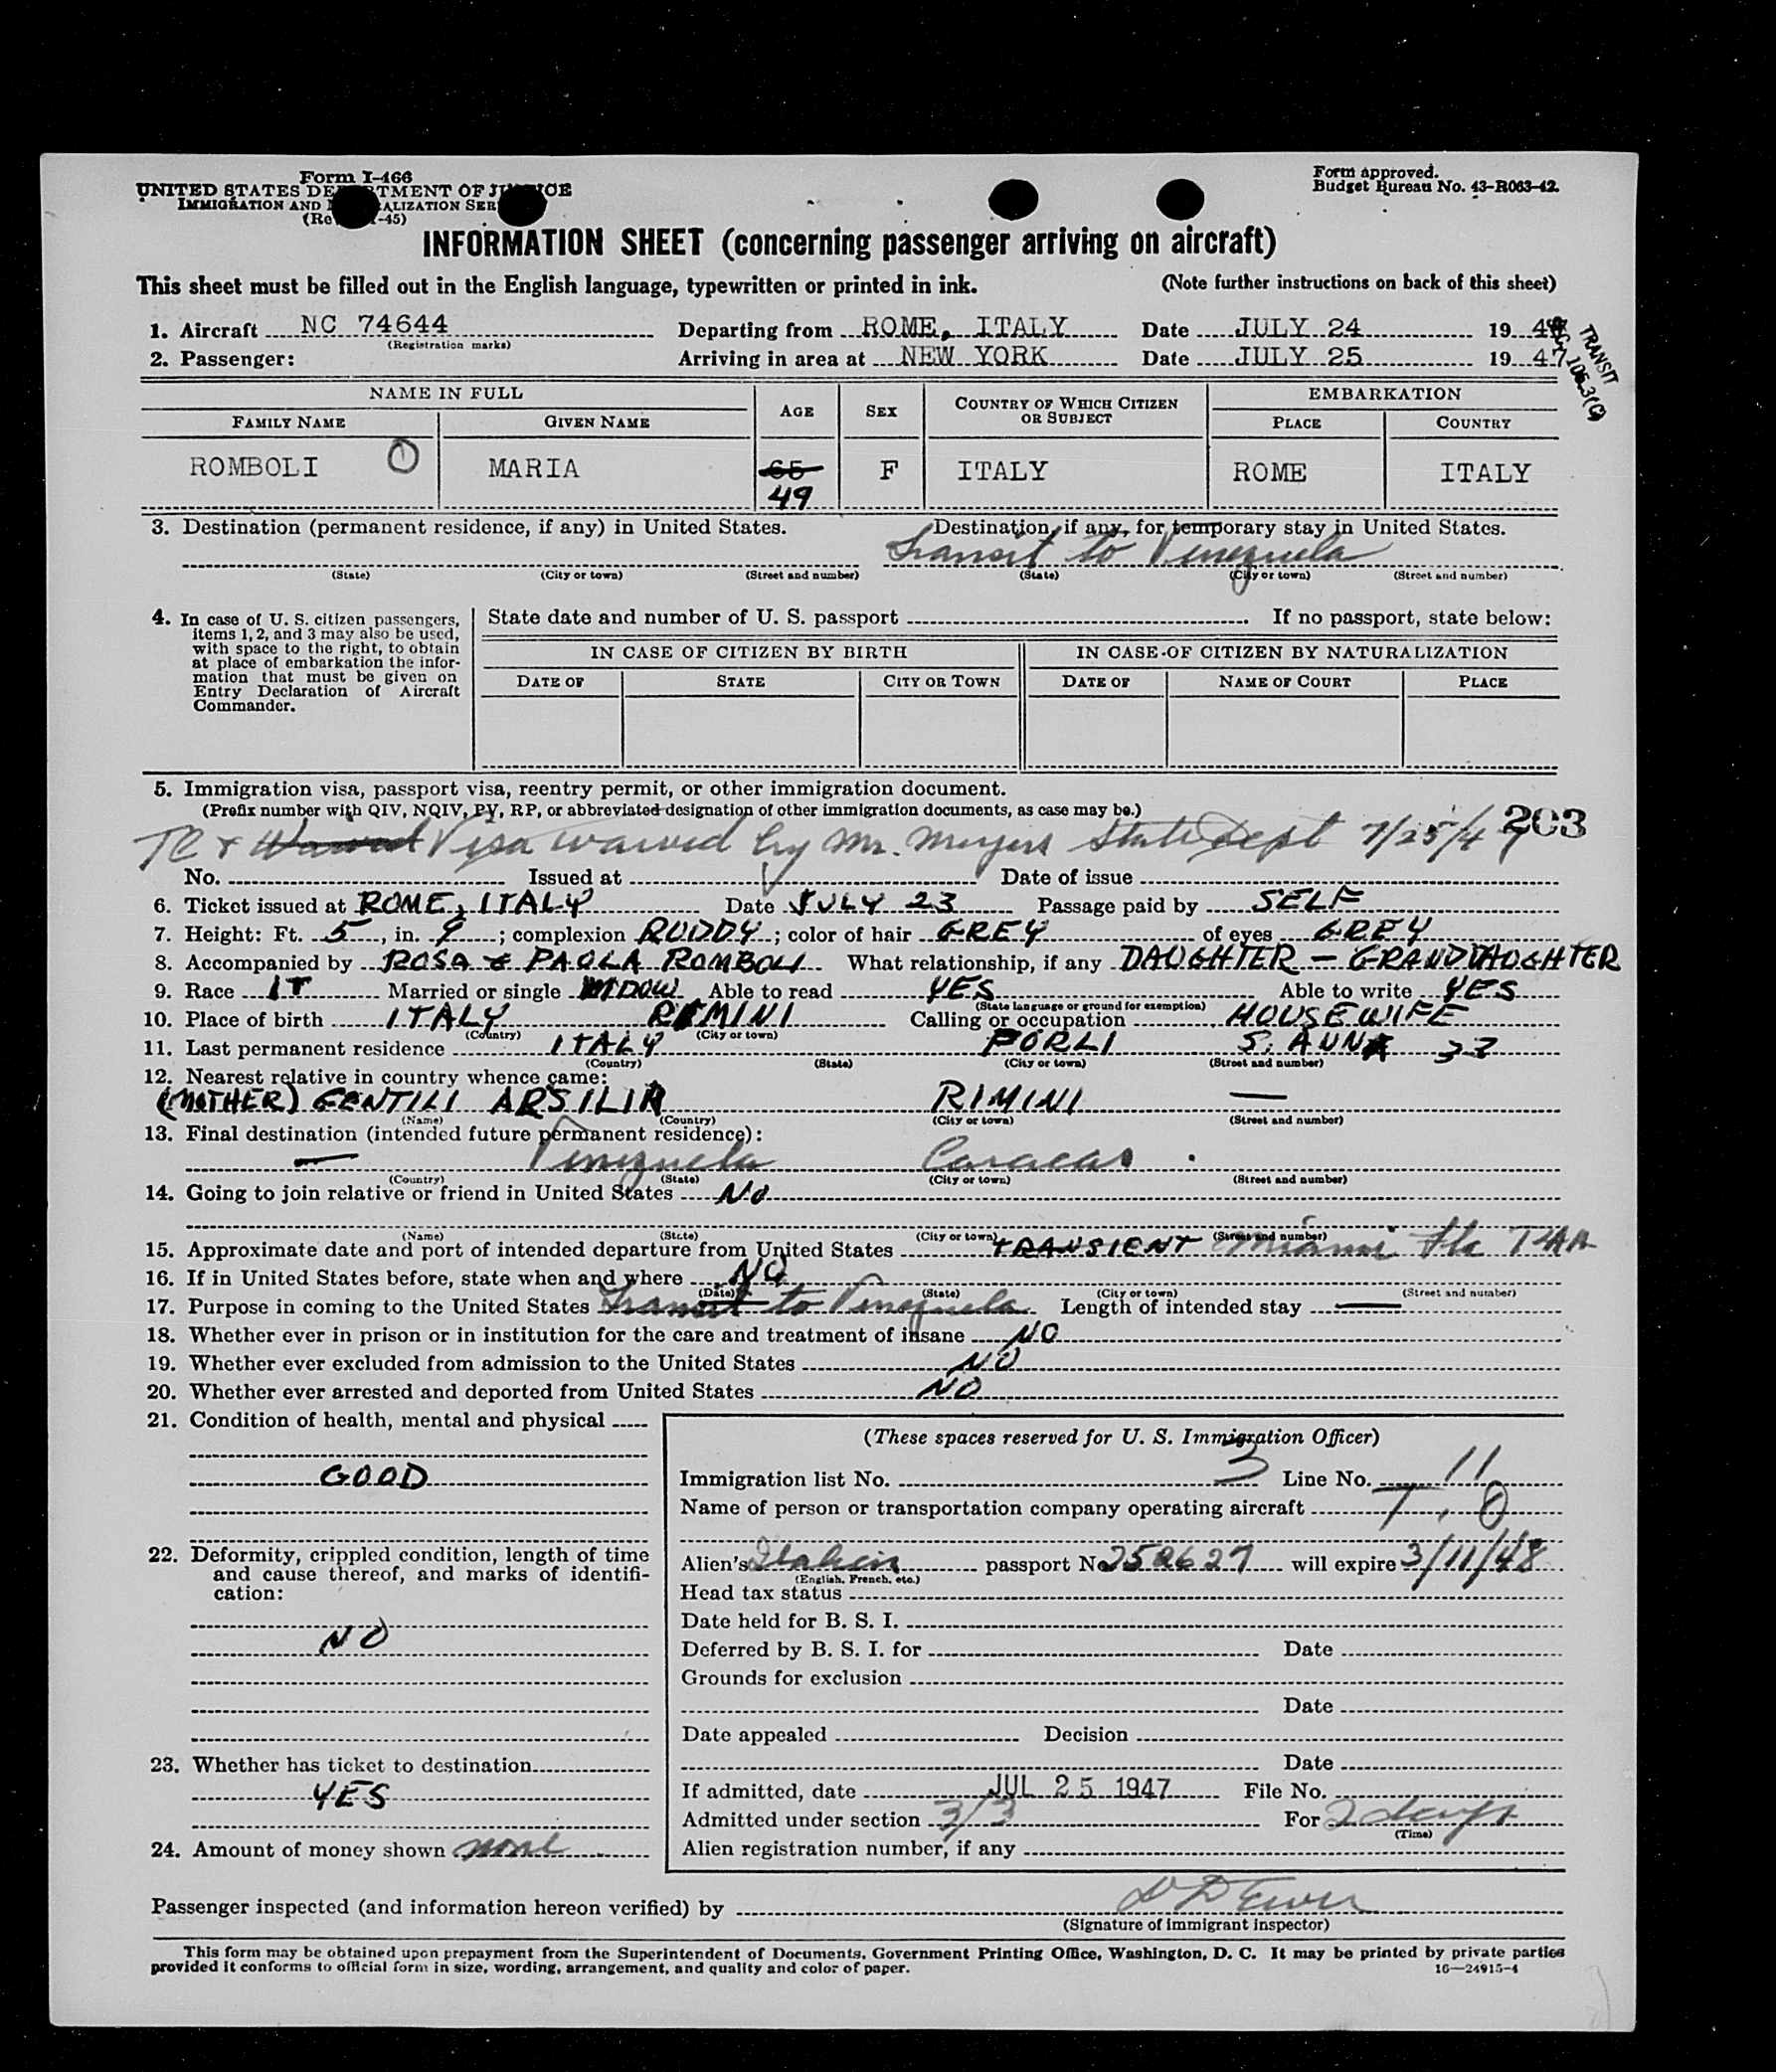 Form I-466
UNITED STATES DEPARTMENT OF JUSTICE
IMMIGRATION AND NATURALIZATION SERVICE
-45)
Form approved.
Budget Bureau No. 43-R063-42.
INFORMATION SHEET (concerning passenger arriving on aircraft)
This sheet must be filled out in the English language, typewritten or printed in ink. (Note further instructions on back of this sheet)
1. Aircraft NC 74644 Departing from ROME, ITALY Date JULY 24 19
(Registration marks)
2. Passenger: Arriving in area at NEW YORK Date JULY 25 19 47
TRANSIT
105.3(C)
NAME IN FULL AGE SEX COUNTRY OF WHICH CITIZEN OR SUBJECT EMBARKATION
FAMILY NAME GIVEN NAME PLACE COUNTRY
ROMBOLI MARIA 65 F ITALY ROME ITALY
49
3. Destination (permanent residence, if any) in United States. Destination, if any, for temporary stay in United States.
Transit to Venezuela
(State) (City or town) (Street and number) (State) (City or town) (Street and number)
4. In case of U. S. citizen passengers, items 1, 2, and 3 may also be used, with space to the right, to obtain at place of embarkation the information that must be given on Entry Declaration of Aircraft Commander.
State date and number of U. S. passport If no passport, state below:
IN CASE OF CITIZEN BY BIRTH IN CASE OF CITIZEN BY NATURALIZATION
DATE OF STATE CITY OR TOWN DATE OF NAME OF COURT PLACE
5. Immigration visa, passport visa, reentry permit, or other immigration document.
(Prefix number with QIV, NQIV, PV, RP, or abbreviated designation of other immigration documents, as case may be.)
203
Waived Visa waived by Mr. Meyers State Dept 7/25/47
No. Issued at Date of issue
6. Ticket issued at ROME, ITALY Date JULY 23 Passage paid by SELF
7. Height: Ft. 5, in. 9; complexion RUDDY; color of hair GREY of eyes GREY
8. Accompanied by ROSA & PAOLA ROMBOLI What relationship, if any DAUGHTER - GRANDDAUGHTER
9. Race IT Married or single WIDOW Able to read YES Able to write YES
(State language or ground for exemption)
10. Place of birth ITALY RIMINI Calling or occupation HOUSEWIFE
(Country) (City or town)
11. Last permanent residence ITALY FORLI S. ANNA 33
(Country) (State) (City or town) (Street and number)
12. Nearest relative in country whence came:
(MOTHER) GENTILI ARSILIA RIMINI —
(Name) (Country) (City or town) (Street and number)
13. Final destination (intended future permanent residence):
— Venezuela Caracas
(Country) (State) (City or town) (Street and number)
14. Going to join relative or friend in United States NO
(Name) (State) (City or town) (Street and number)
15. Approximate date and port of intended departure from United States TRANSIENT Miami Fla
16. If in United States before, state when and where NO
(Date) (State) (City or town) (Street and number)
17. Purpose in coming to the United States Transit to Venezuela Length of intended stay —
18. Whether ever in prison or in institution for the care and treatment of insane NO
19. Whether ever excluded from admission to the United States NO
20. Whether ever arrested and deported from United States NO
21. Condition of health, mental and physical
GOOD
22. Deformity, crippled condition, length of time and cause thereof, and marks of identification:
NO
23. Whether has ticket to destination
YES
24. Amount of money shown none
(These spaces reserved for U. S. Immigration Officer)
Immigration list No. 3 Line No. 11
Name of person or transportation company operating aircraft
Alien's Italian passport No 252627 will expire 3/11/48
(English, French, etc.)
Head tax status
Date held for B. S. I.
Deferred by B. S. I. for Date
Grounds for exclusion
Date
Date appealed Decision
Date
If admitted, date JUL 25 1947 File No.
Admitted under section 3/3 For 2 days
(Time)
Alien registration number, if any
Passenger inspected (and information hereon verified) by
(Signature of immigrant inspector)
This form may be obtained upon prepayment from the Superintendent of Documents, Government Printing Office, Washington, D. C. It may be printed by private parties
provided it conforms to official form in size, wording, arrangement, and quality and color of paper. 16—24915-4